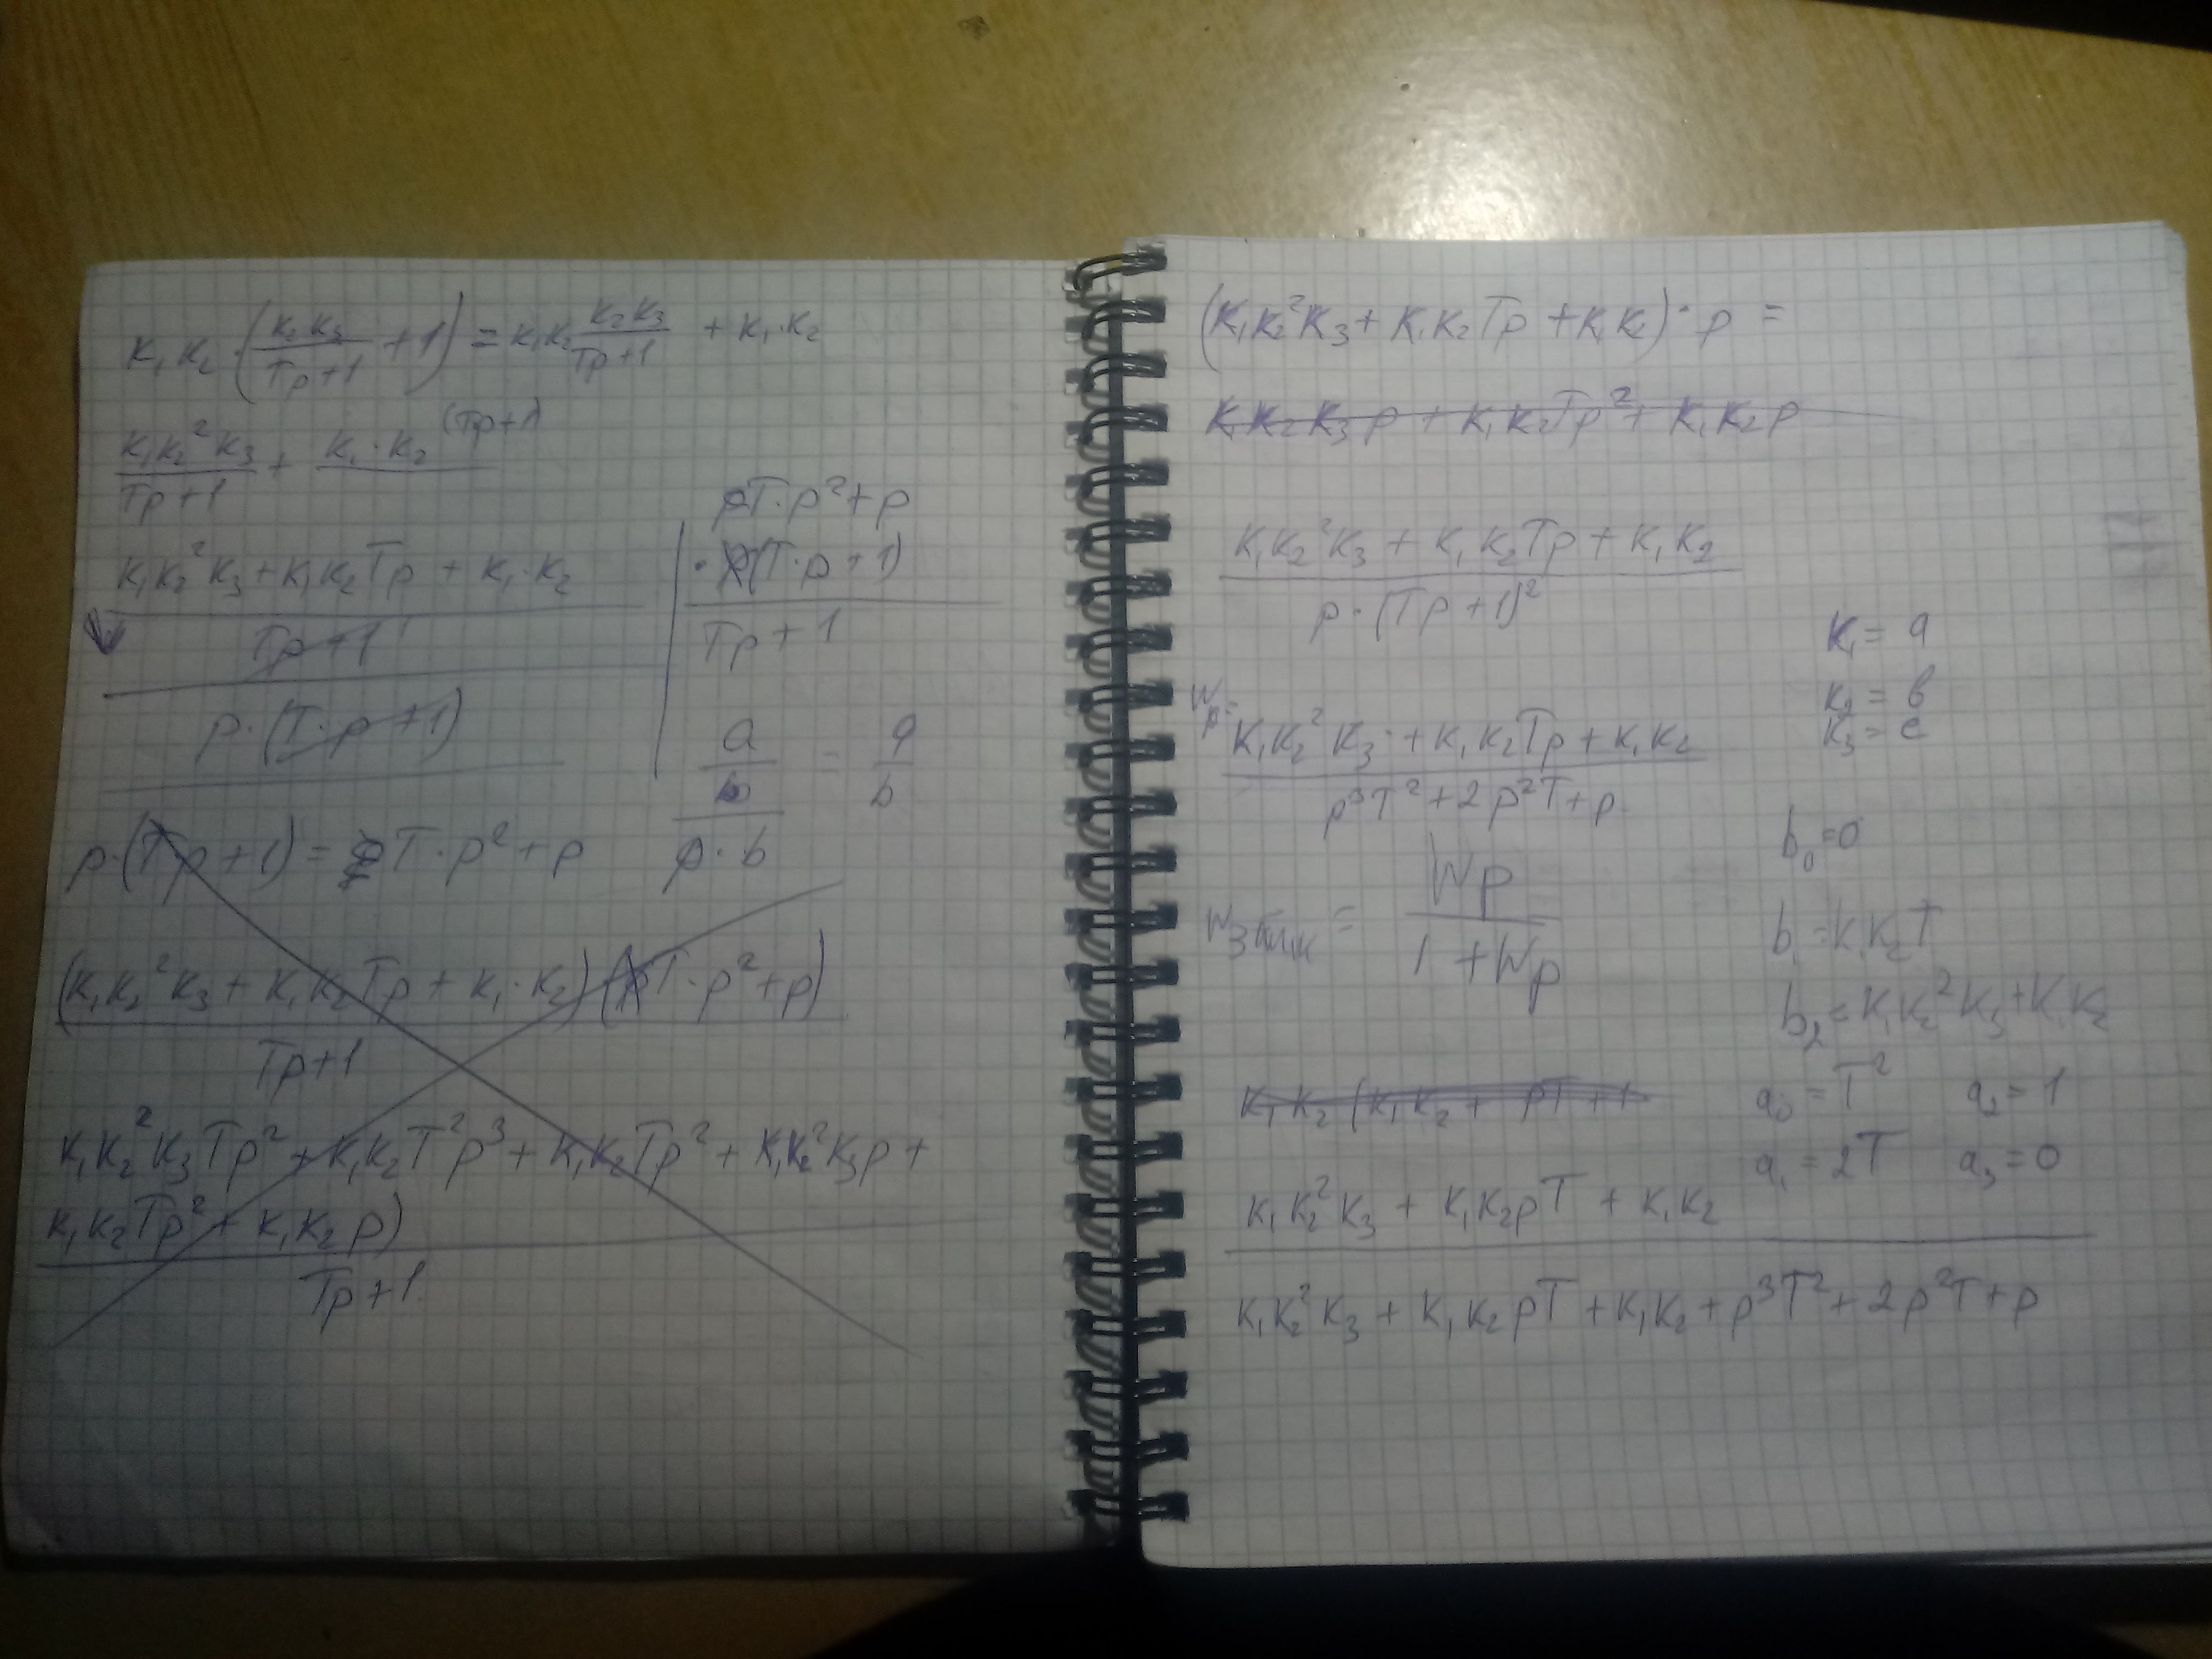 K₁K₂·(K₂K₃/(Tp+1) +1) = K₁K₂ K₂K₃/(Tp+1) + K₁·K₂
K₁K₂²K₃/(Tp+1) + K₁·K₂ (Tp+1)
K₁K₂²K₃+K₁K₂Tp + K₁·K₂
Tp+1
p·(T·p+1)
pT·p²+p
·p(T·p+1)
Tp+1
a/b/(p·b) = a/b
p·(Tp+1) = T·p²+p
(K₁K₂²K₃ + K₁K₂Tp + K₁·K₂) (T·p²+p)
Tp+1
K₁K₂²K₃Tp² + K₁K₂T²p³ + K₁K₂Tp² + K₁K₂²K₃p +
K₁K₂Tp² + K₁K₂p)
Tp+1
(K₁K₂²K₃ + K₁K₂Tp + K₁K₂)·p =
K₁K₂K₃p + K₁K₂Tp² + K₁K₂p
K₁K₂²K₃ + K₁K₂Tp + K₁K₂
p·(Tp+1)²
K₁ = a
K₂ = b
K₃ = c
Wp =
K₁K₂²K₃ + K₁K₂Tp + K₁K₂
p³T²+2p²T+p
b₀ = 0
Wp
1+Wp
b₁ = K₁K₂T
b₂ = K₁K₂²K₃+K₁K₂
K₁K₂(K₁K₂ + pT+1
a₀ = T² a₂ = 1
a₁ = 2T a₃ = 0
K₁K₂²K₃ + K₁K₂pT + K₁K₂
K₁K₂²K₃ + K₁K₂pT + K₁K₂ + p³T² + 2p²T + p